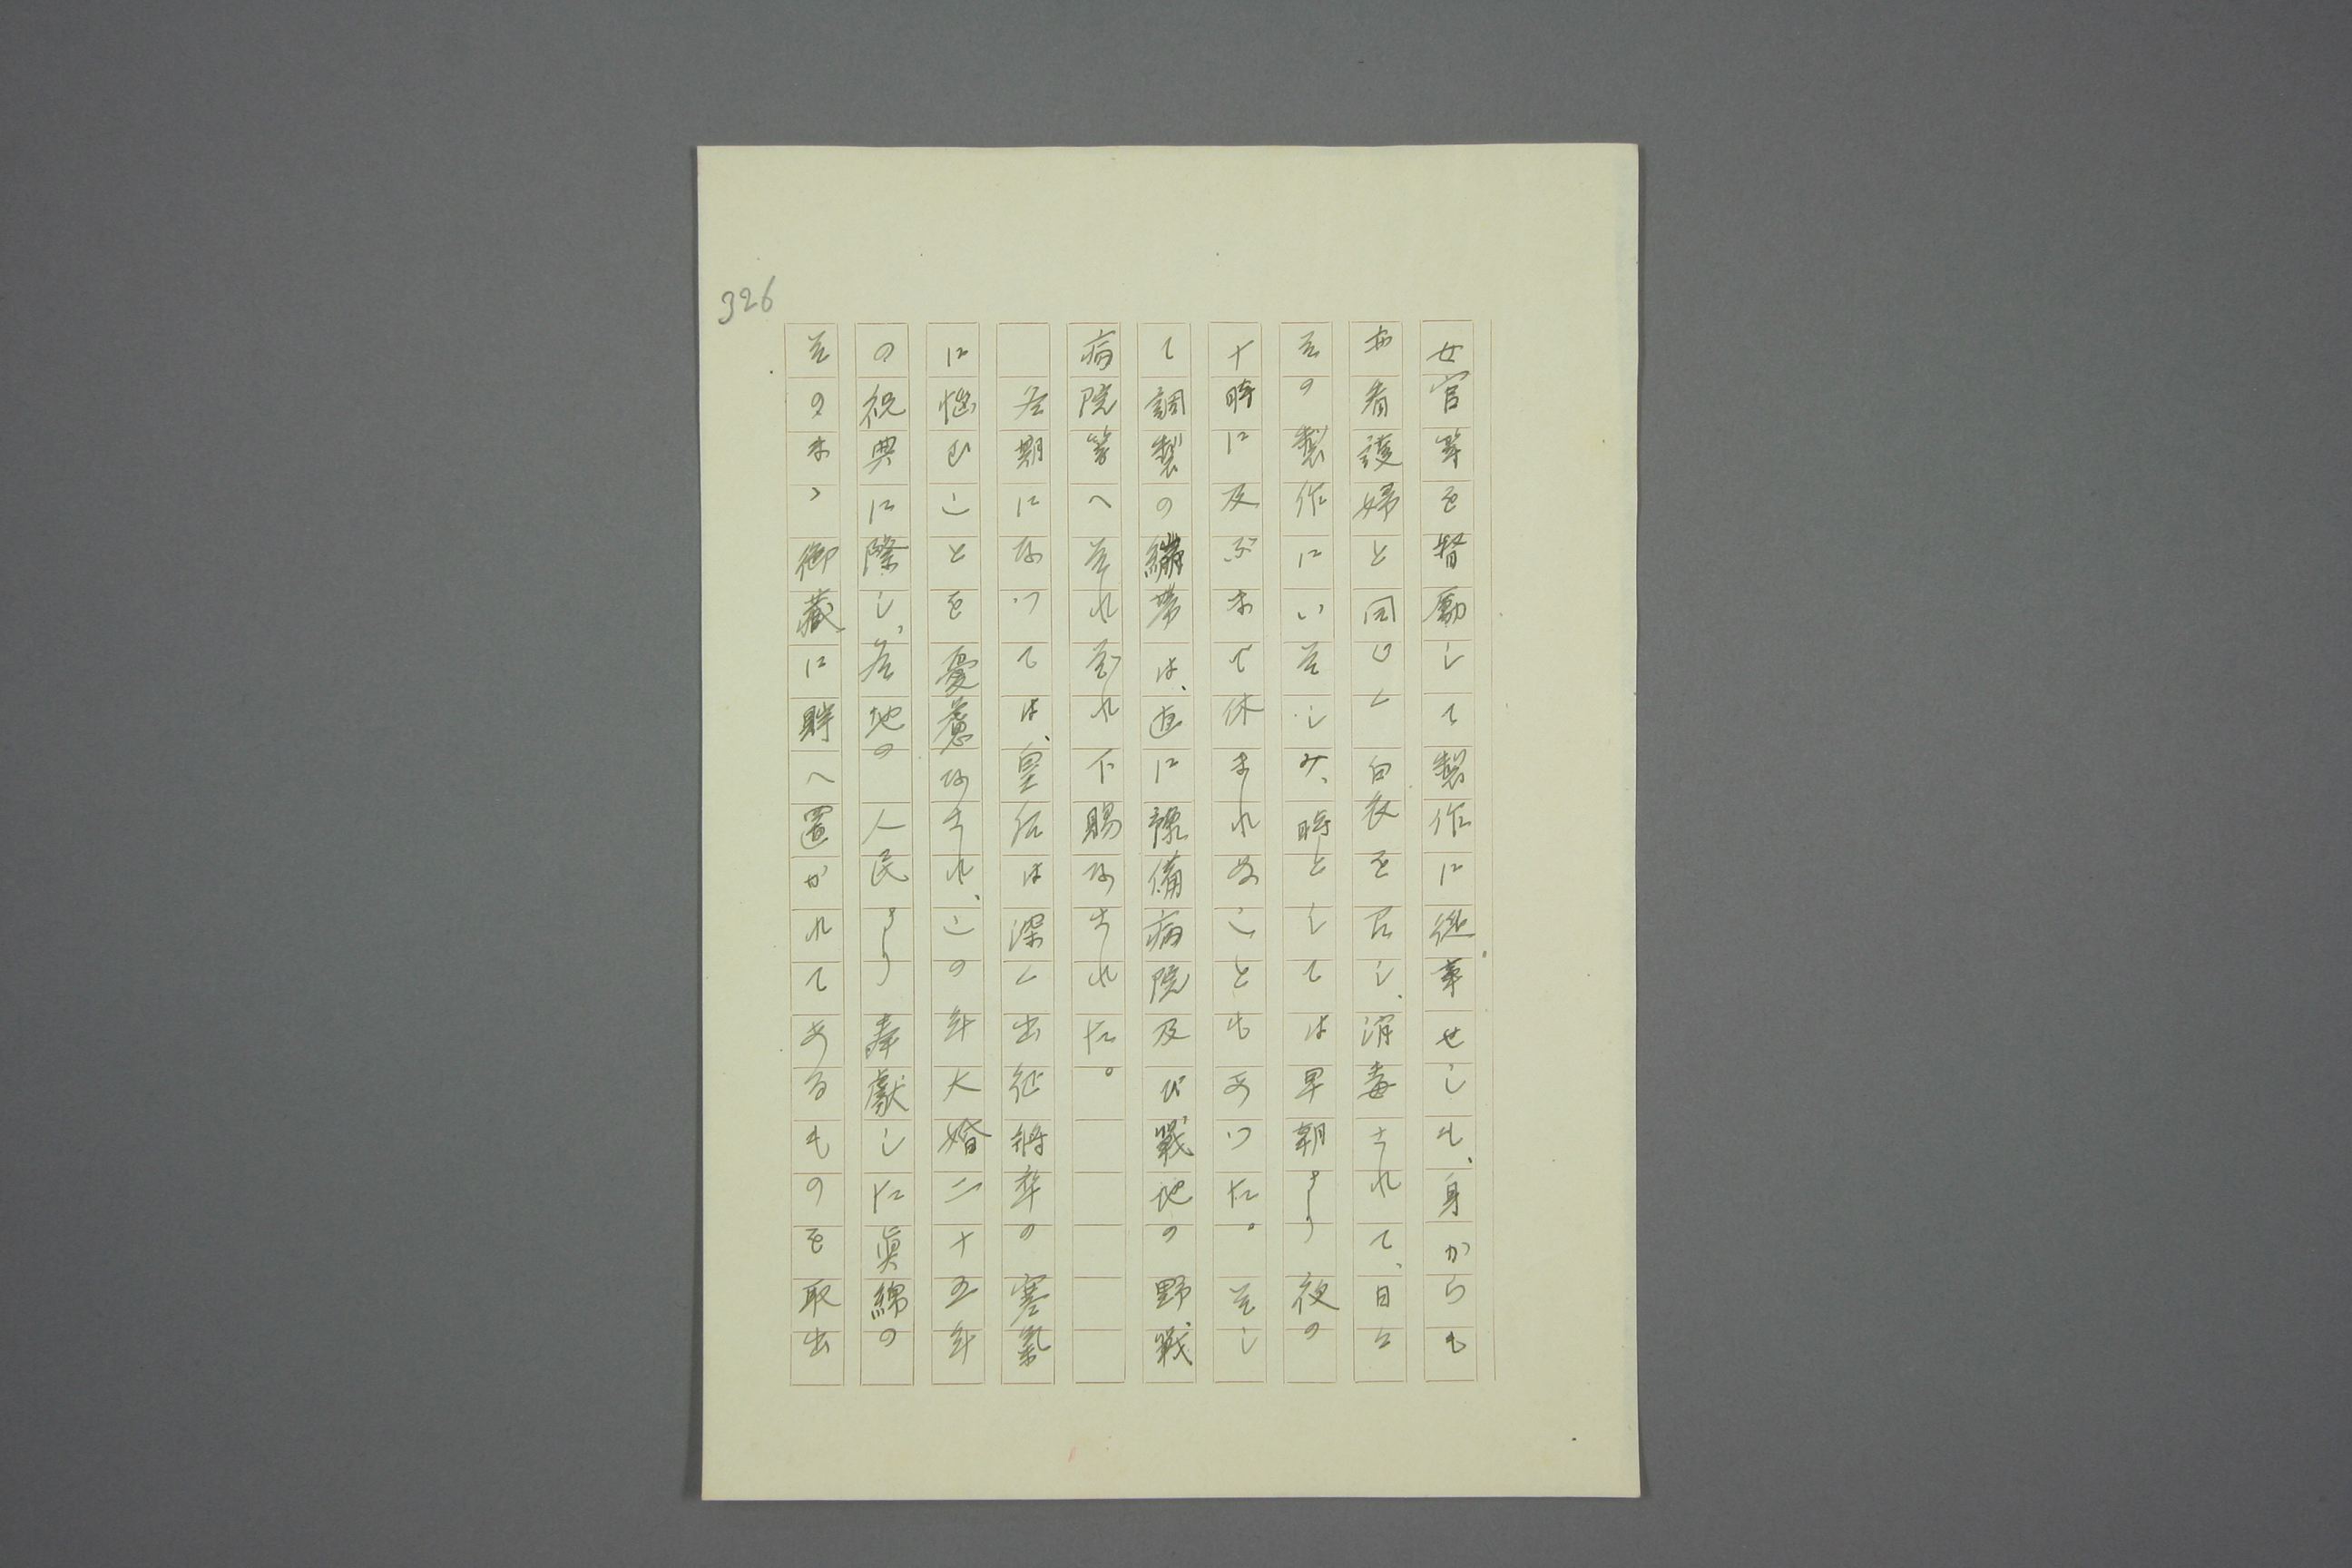 女官等を督勵して製作に從事せしも、身からも
亦看護婦と同じく白衣を召し、消毒されて、日々
その製作にいそしみ、時としては早朝より夜の
十時に及ぶまで休まれぬこともあつた。そし
て調製の繃帶は、直に豫備病院及び戰地の野戰
病院等へそれぞれ下賜なされた。
冬期になつては、皇后は深く出征將卒の寒氣
に惱むことを憂慮なされ、この年大婚二十五年
の祝典に際し、各地の人民より奉獻した眞綿の
そのまゝ御藏に貯へ置かれてあるものを取出
326